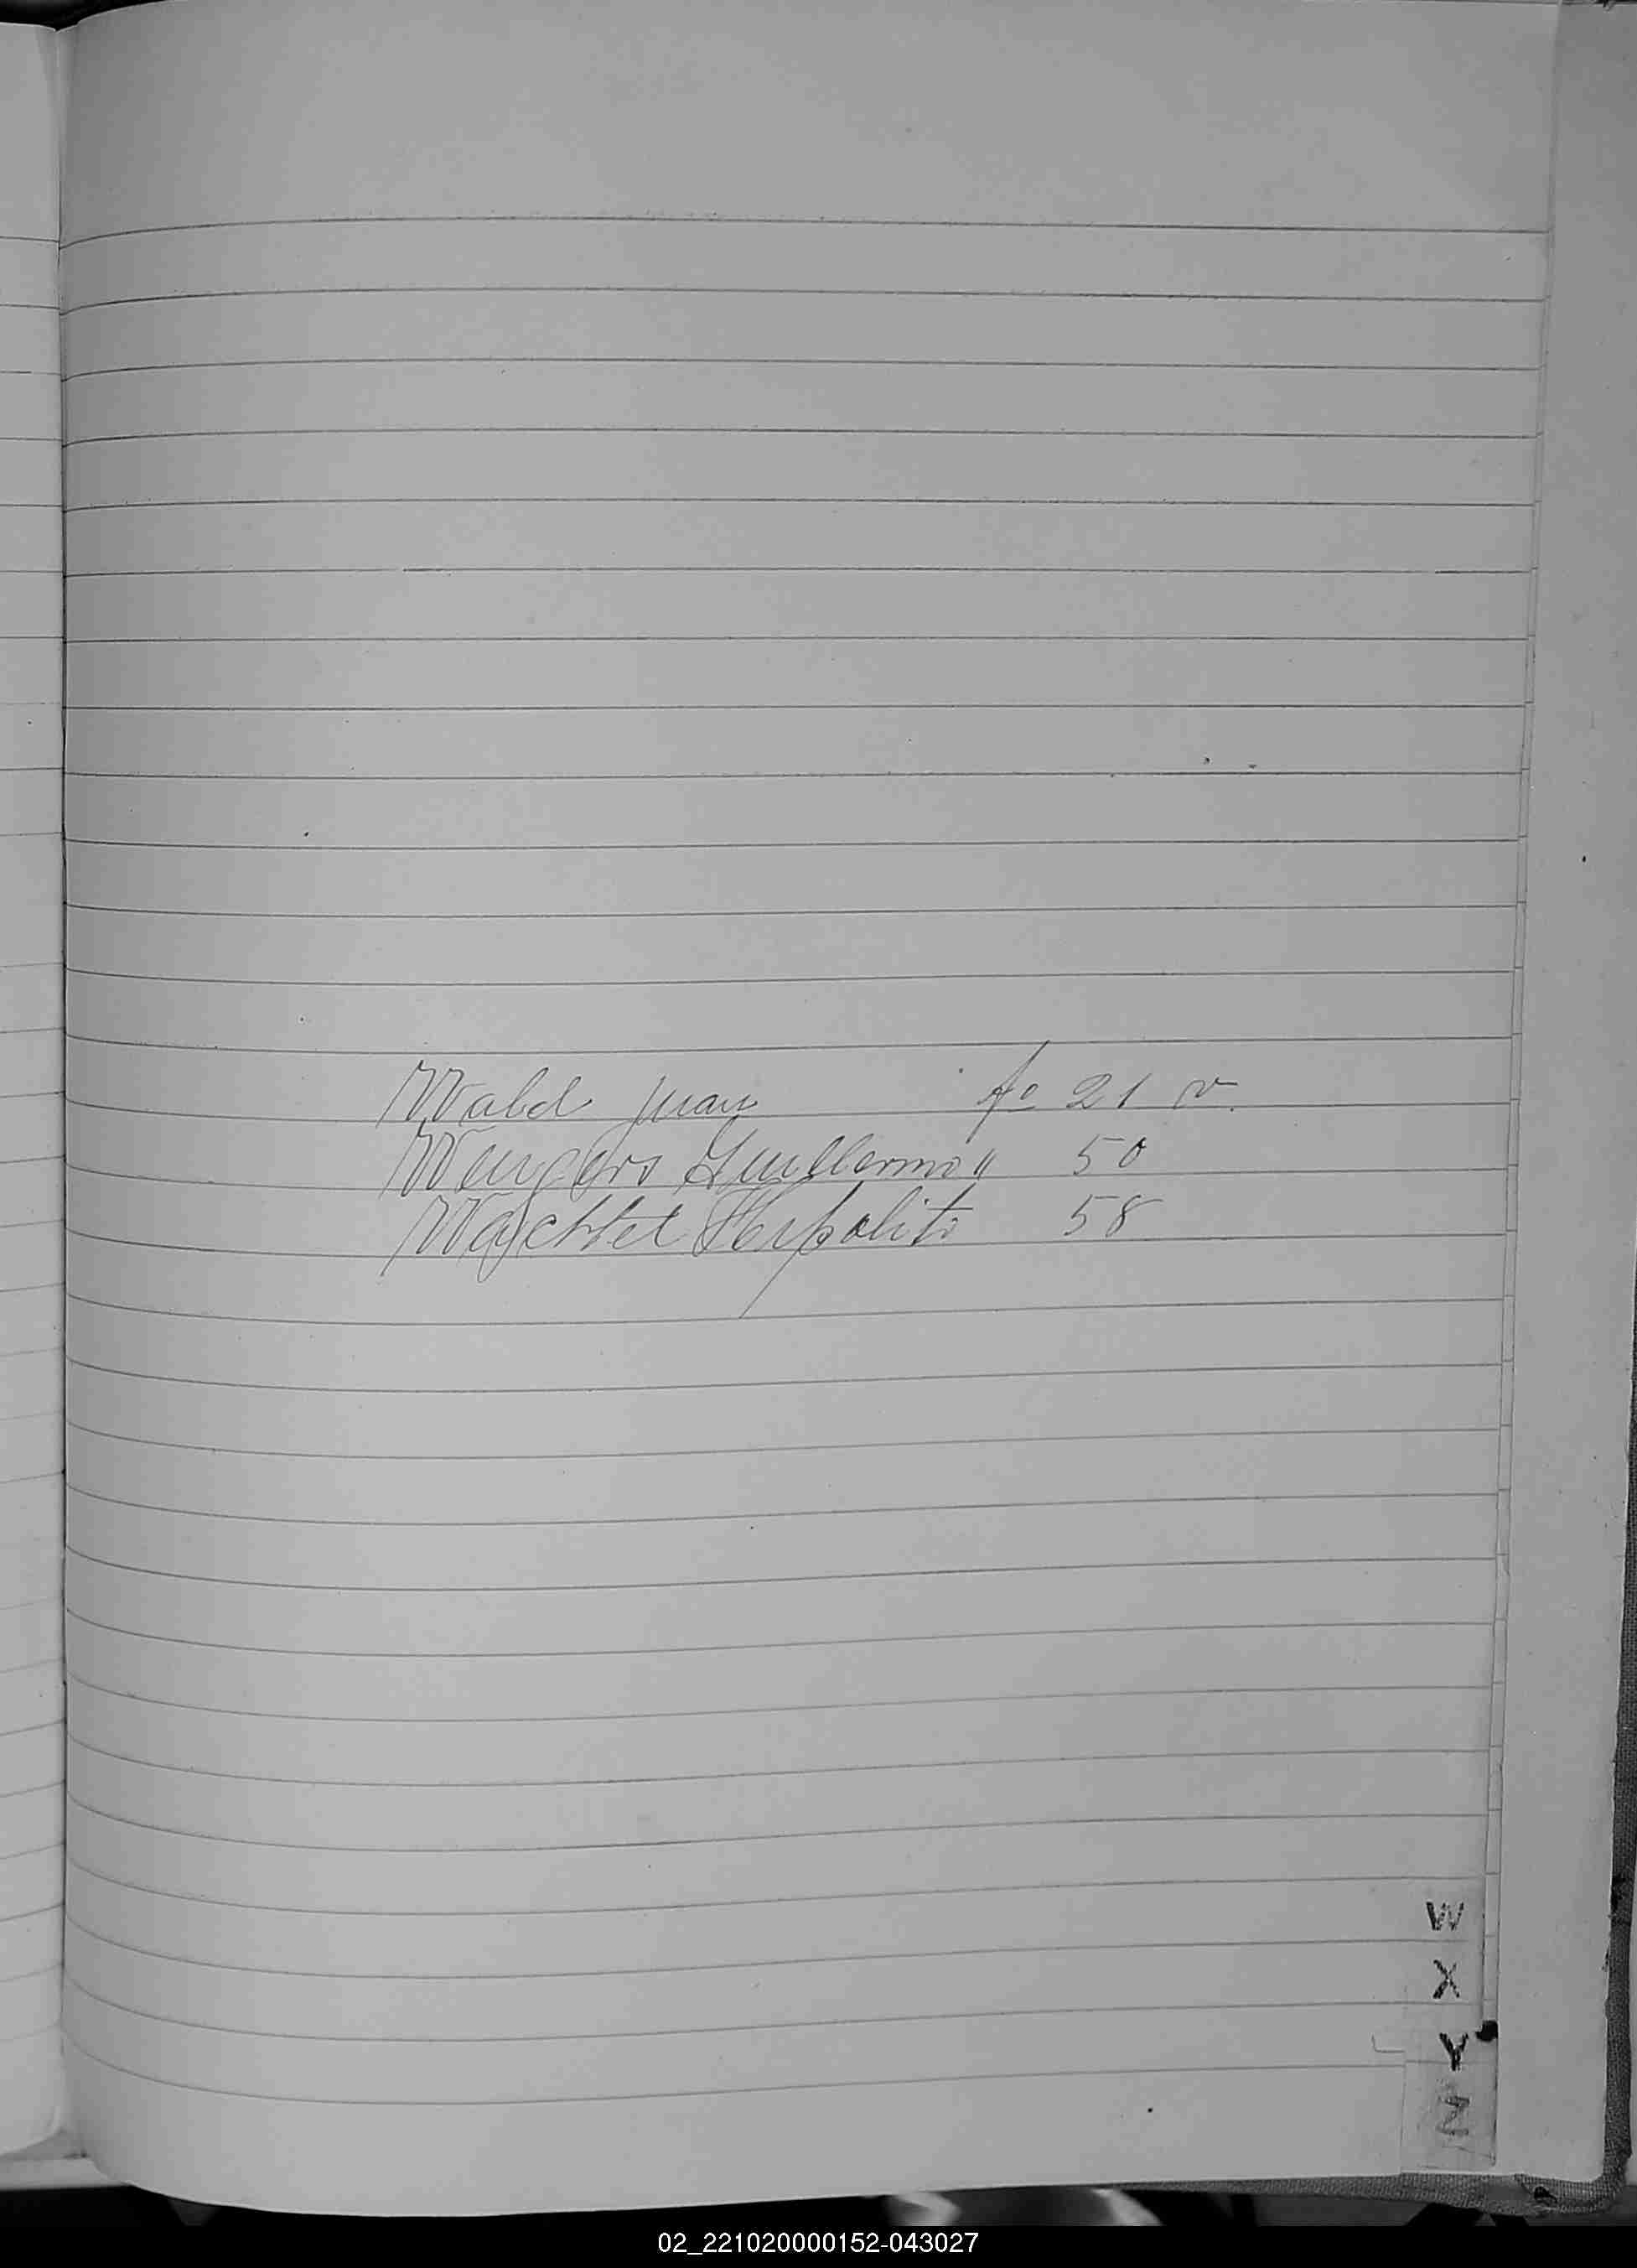 Wald Juan fo 21 v.
Wengers Guillermo " 50
Wachtel Hipolito 58
W
X
Y
Z
02_221020000152-043027